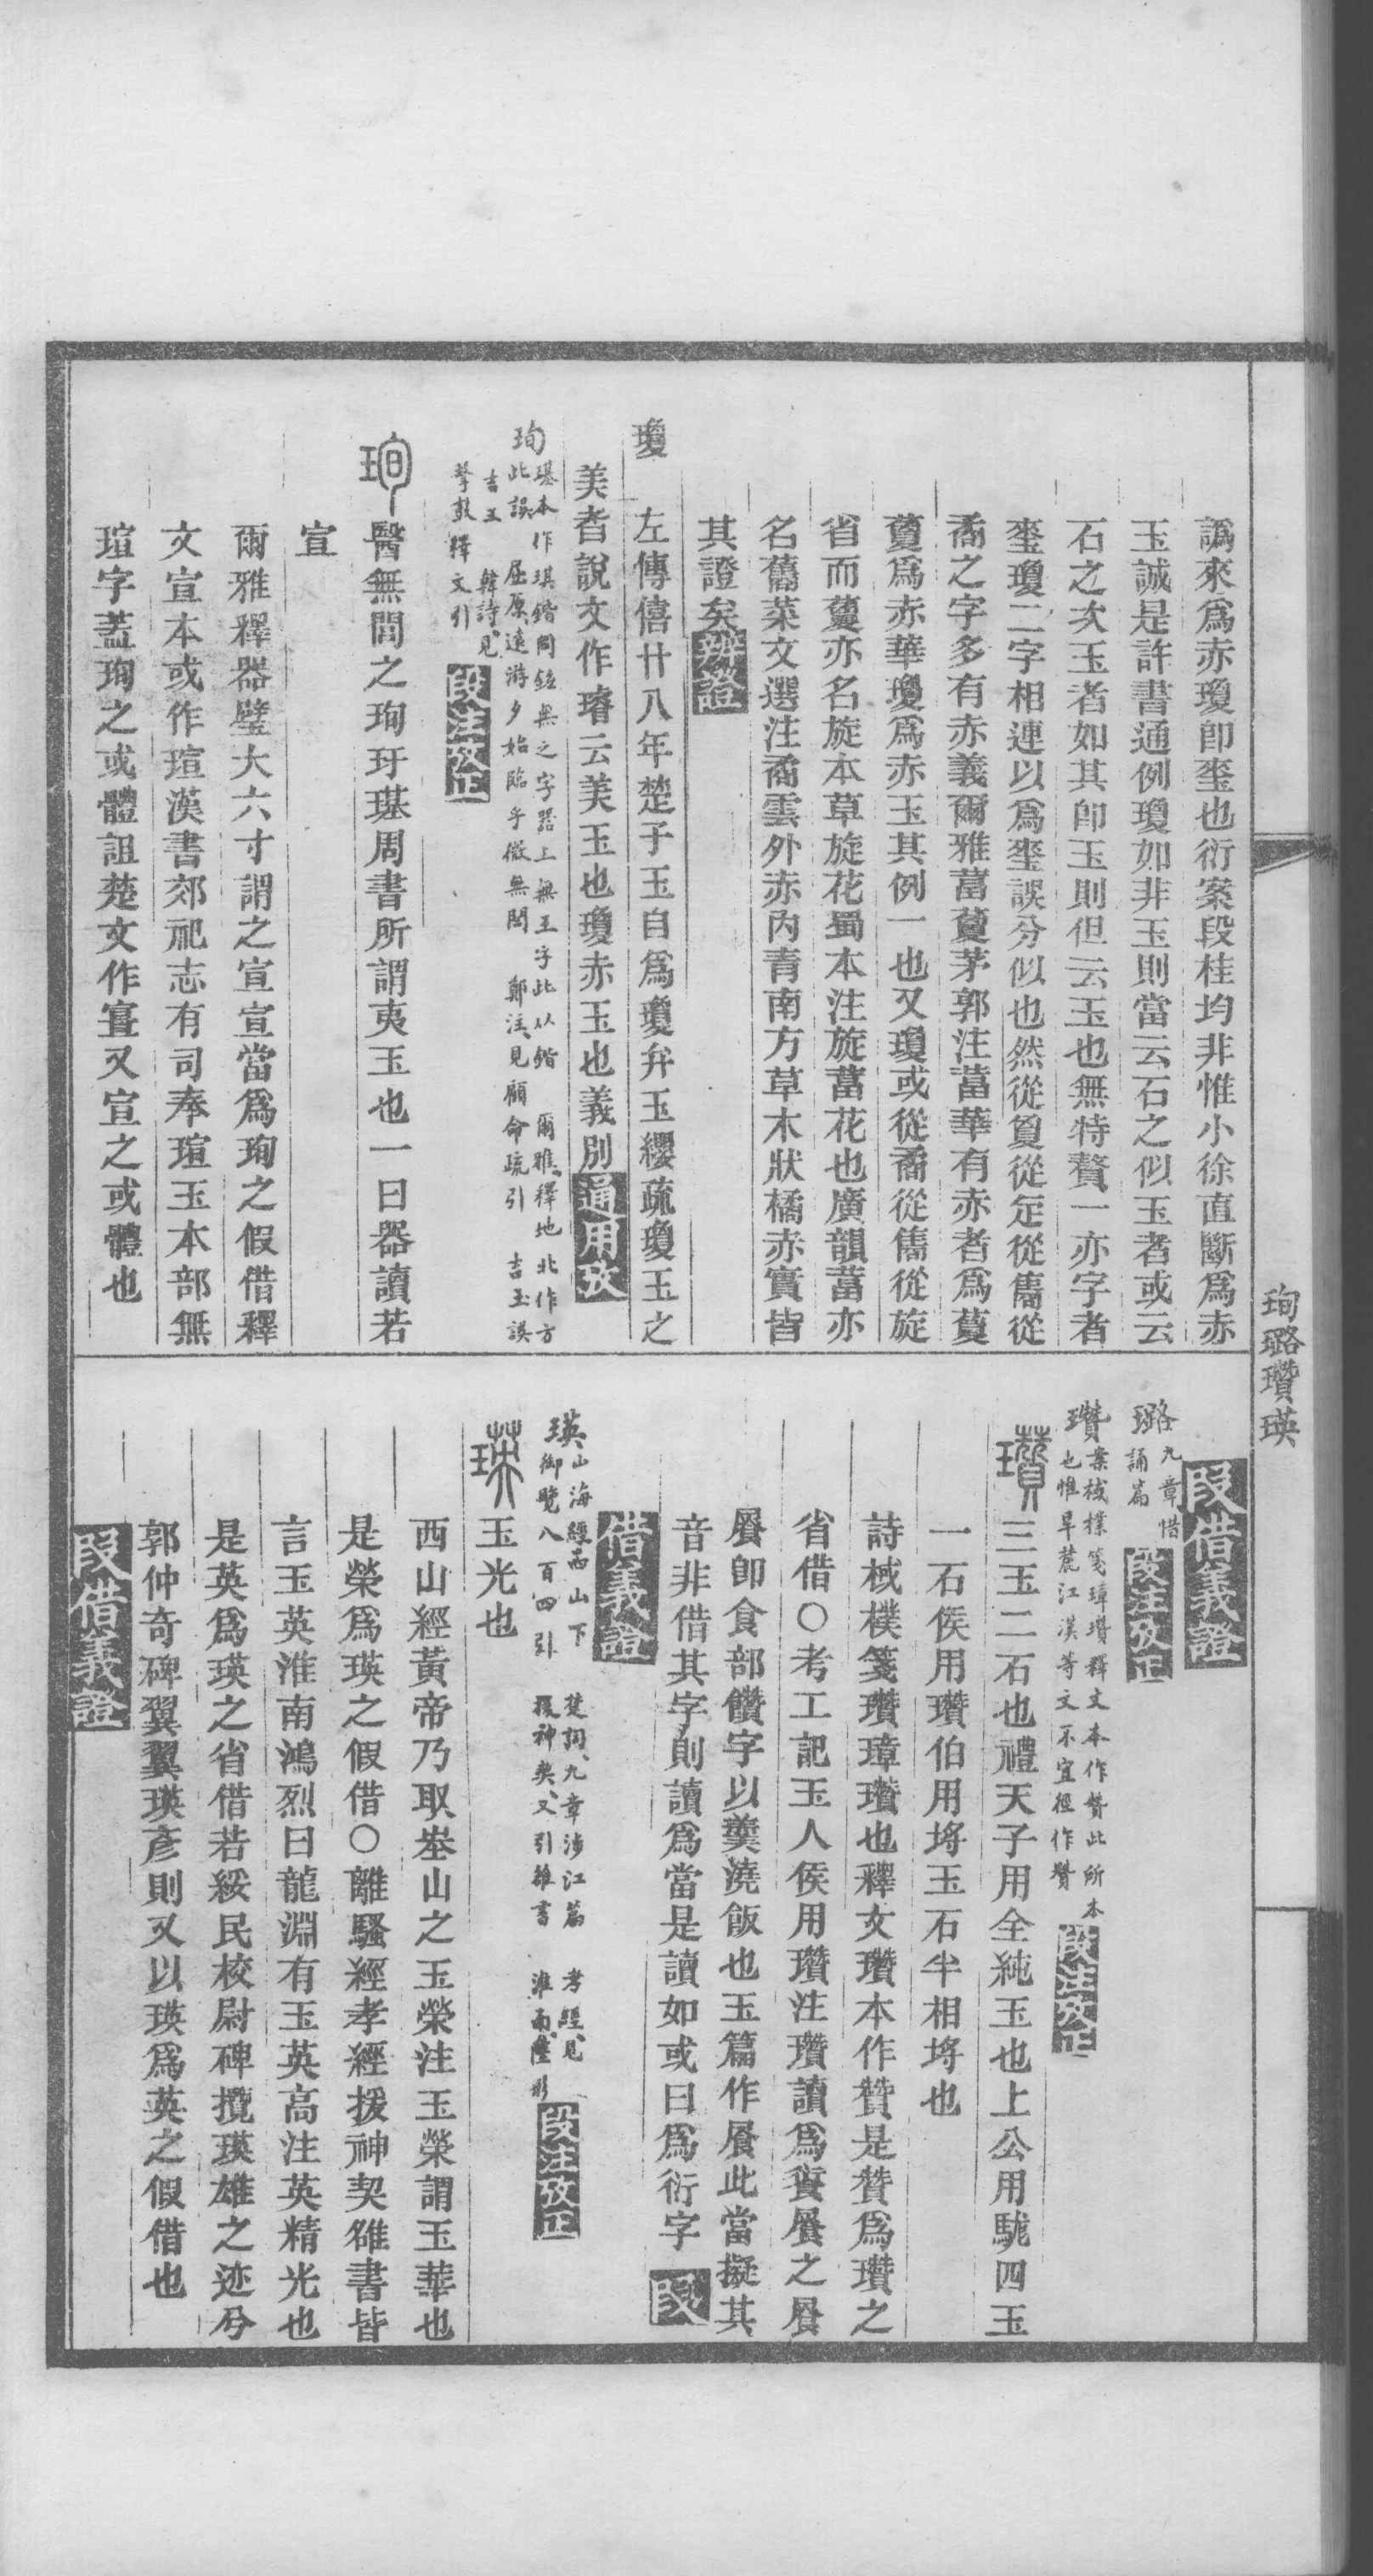 譌來爲赤瓊卽琧也衍案段桂均非惟小徐直斷爲赤
玉誠是許書通例瓊如非玉則當云石之似玉者或云
石之次玉者如其卽玉則但云玉也無特贅一亦字者
琧瓊二字相連以爲琧誤分似也然從敻從定從雟從
矞之字多有赤義爾雅葍藑茅郭注葍華有赤者爲藑
藑爲赤華瓊爲赤玉其例一也又瓊或從矞從雟從旋
省而藑亦名旋本草旋花蜀本注旋葍花也廣韻葍亦
名舊菜文選注矞雲外赤內青南方草木狀橘赤實皆
其證矣辨證
瓊 左傳僖廿八年楚子玉自爲瓊弁玉纓疏瓊玉之
美者說文作璿云美玉也瓊赤玉也義別通用攷
珣 璂本作琪鍇同鉉無之字器上無玉字此以鍇 爾雅釋地北作方
此誤 屈原遠游夕始臨乎微無閭 鄭注見顧命疏引 吉玉誤
吉王 韓詩見
擊鼓釋文引 段注攷正
珣 醫無閭之珣玗璂周書所謂夷玉也一曰器讀若
宣
爾雅釋器璧大六寸謂之宣宣當爲珣之假借釋
文宣本或作瑄漢書郊祀志有司奉瑄玉本部無
瑄字蓋珣之或體詛楚文作𡩡又宣之或體也
珣璐瓚瑛
段借義證
璐 九章惜
誦篇 段注攷正
瓚 案棫樸箋璋瓚釋文本作贊此所本
也惟旱麓江漢等文不宜徑作贊 段注攷正
瓚 三玉二石也禮天子用全純玉也上公用駹四玉
一石侯用瓚伯用埒玉石半相埒也
詩棫樸箋瓚璋瓚也釋文瓚本作贊是贊爲瓚之
省借○考工記玉人侯用瓚注瓚讀爲䉛𡳐之𡳐
𡳐卽食部饡字以羹澆飯也玉篇作𡳐此當擬其
音非借其字則讀爲當是讀如或曰爲衍字 段
借義證
瑛 山海經西山下 楚詞九章涉江篇 孝經見
御覽八百四引 援神契又引雒書 淮南墬形 段注攷正
瑛 玉光也
西山經黃帝乃取峚山之玉榮注玉榮謂玉華也
是榮爲瑛之假借○離騷經孝經援神契雒書皆
言玉英淮南鴻烈曰龍淵有玉英高注英精光也
是英爲瑛之省借若綏民校尉碑攬瑛雄之迹兮
郭仲奇碑翼翼瑛彥則又以瑛爲英之假借也
段借義證